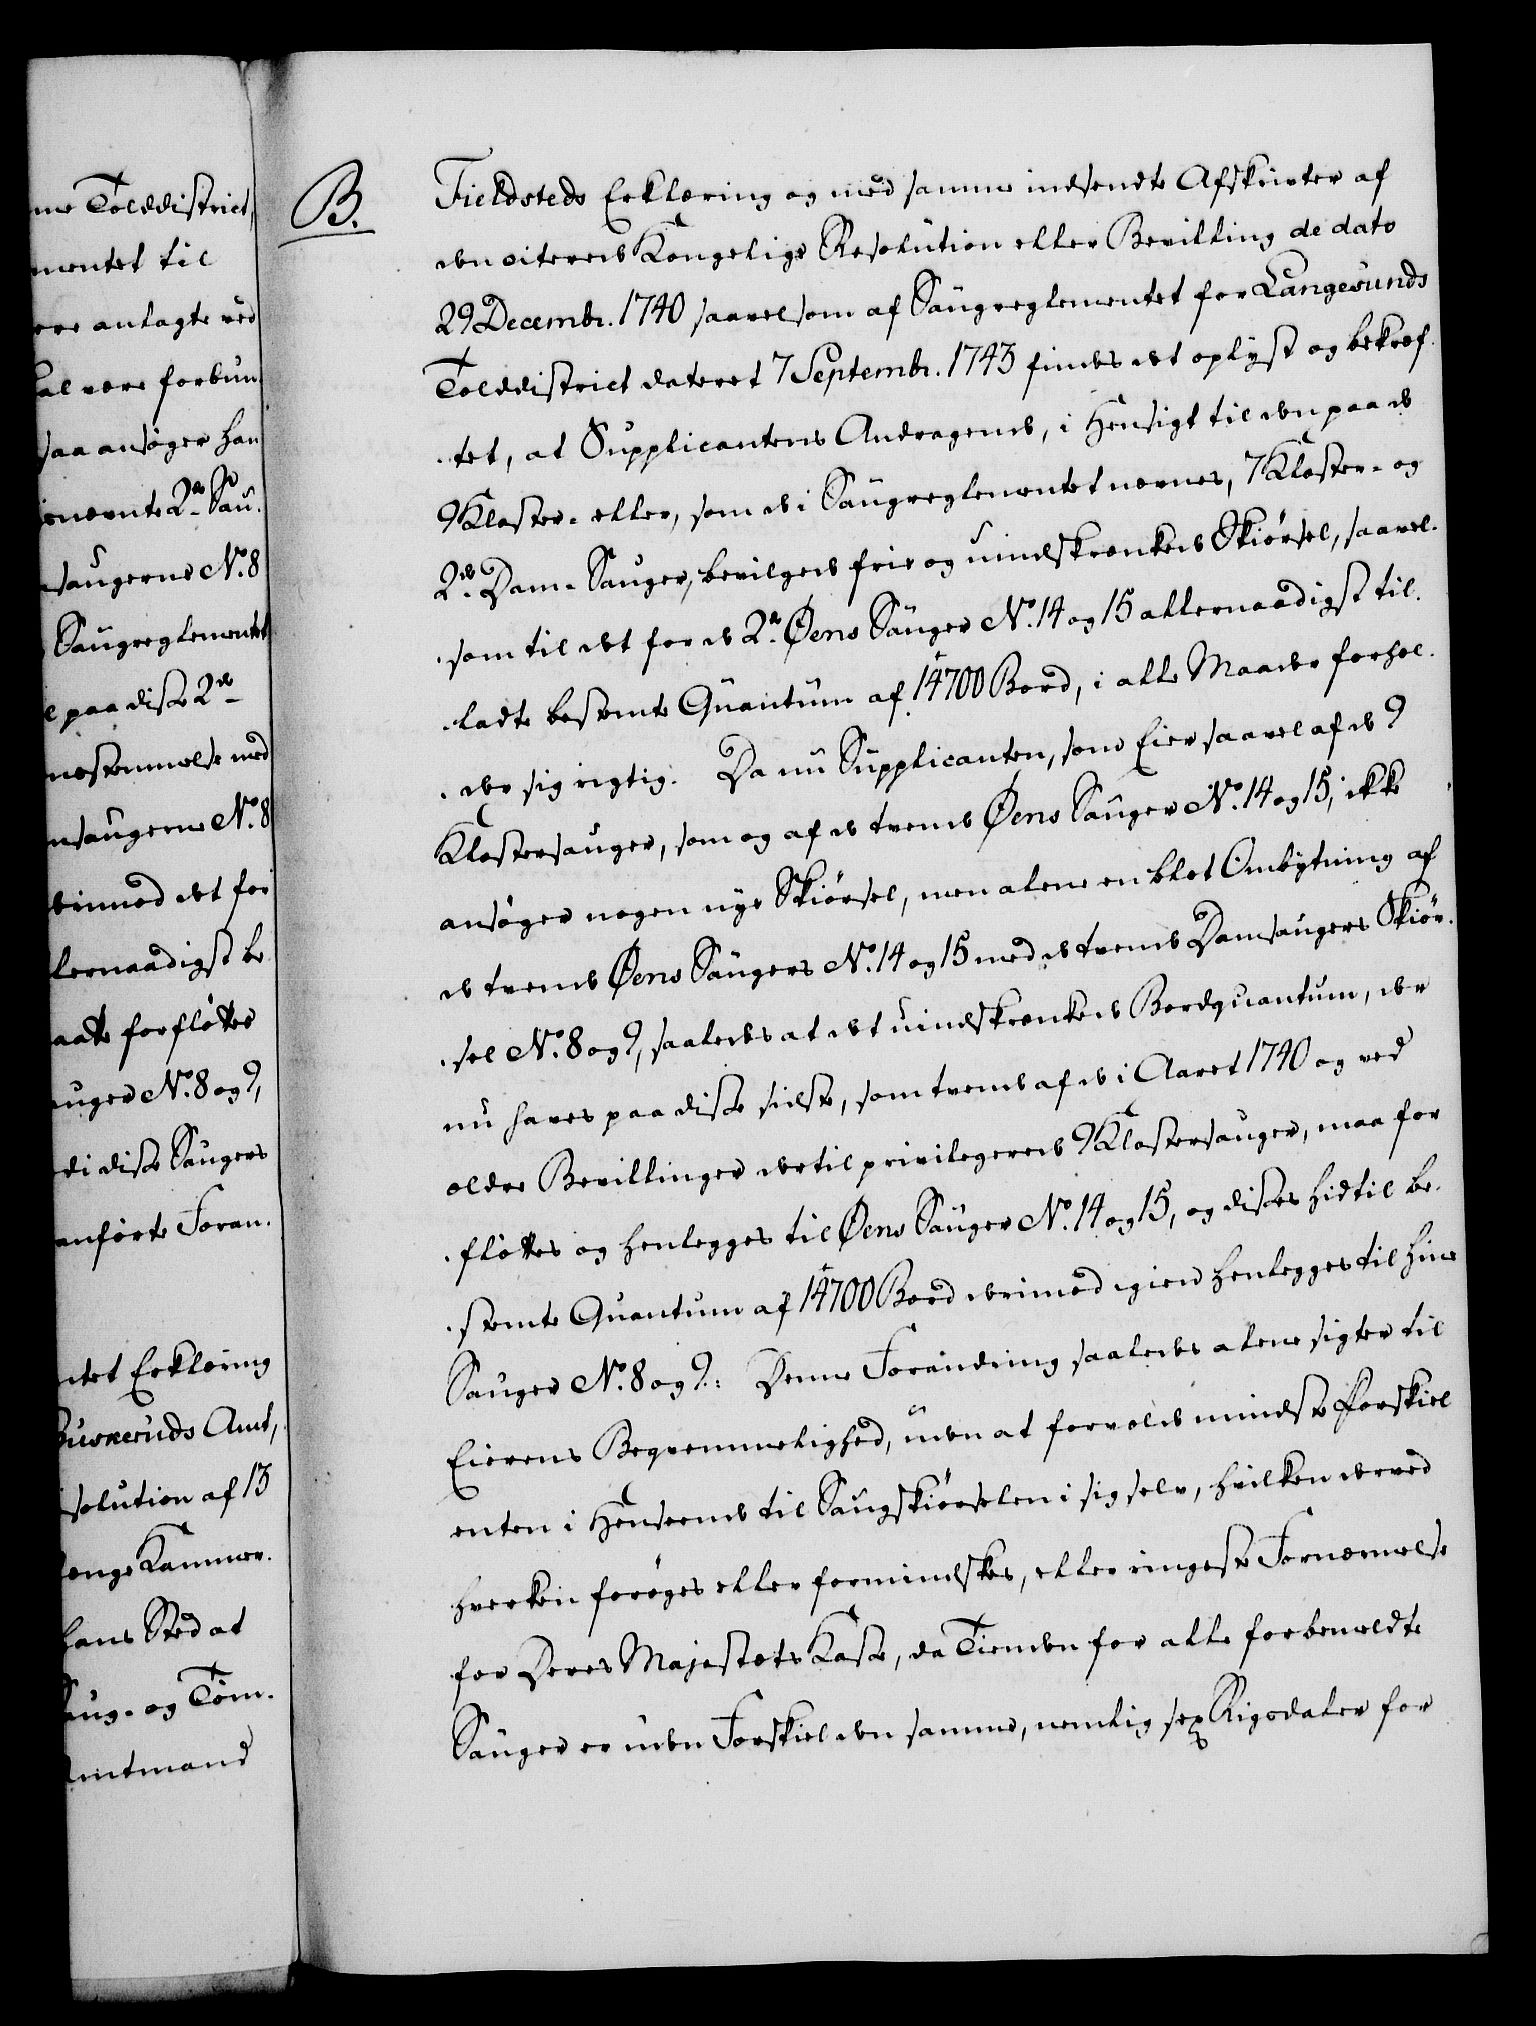 me Tolddistrict,
mentet til
ere anlagte ved
al være forbun
saa ansøger han
enævnte 2de Sau.
saugerne No. 8
Saugreglementet
e paa disse 2de
nestemmelse med
msaugerne No. 8
erimod det for
lernaadigst be
aatte forfløttes
auger No. 8 og 9,
di disse Saugers
anførte Foran.
ntet Erklæring
Buskeruds Amt,
solution af 13
enge Kammer.
hans Sted at
Saug- og Tøm.
Amtmand
B.
Fieldsteds Erklæring og med samme indsendte Afskrivter af
den siterede Kongelige Resolution eller Bevilling de dato
29 Decembr. 1740 saavelsom af Saugreglementet for Langesunds
Tolddistrict dateret 7 Septembr. 1743 findes det oplyst og bekræf.
.tet, at Supplicantens Andragende, i Hensigt til den paa de
9 Kloster- eller, som de i Saugreglementet nævnes, 7 Kloster- og
2de Dam-Sauger, bevilgede frie og uindskrænkede Skiørsel, saavel.
.som til det for de 2de Øens Sauger No. 14 og 15 allernaadigst til.
.ladte bestemte Quantum af 14700 Bord, i alle Maader forhol.
.der sig rigtig. Da nu Supplicanten, som Eier saavel af de 9
Klostersauger, som og af de tvende Øens Sauger No. 14 og 15, ikke
ansøger nogen nye Skiørsel, men alene en blot Ombytning af
de tvende Øens Saugers No. 14 og 15 med de tvende Damsaugers Skiør.
.sel No. 8 og 9, saaledes at det uindskrænkede Bordquantum, der
nu haves paa disse sidste, som tvende af de i Aaret 1740 og ved
ældre Bevillinger dertil privilegerede 9 Klostersauger, maa for
.fløttes og henlegges til Øens Sauger No. 14 og 15, og disses hidtil be.
.stemte Quantum af 14700 Bord derimod igien henlegges til hine
Sauger No. 8 og 9.: Denne Forandring saaledes alene sigter til
Eierens Beqvemmelighed, uden at forvolde mindste Forskiel
enten i Henseende til Saugskiørselen i sig selv, hvilken derved
hverken forøges eller formindskes, eller ringeste Fornærmelse
for Deres Majestæts Kasse, da Tienden for alle forbemeldte
Sauger er uden Forskiel den samme, nemlig sex Rigsdaler for